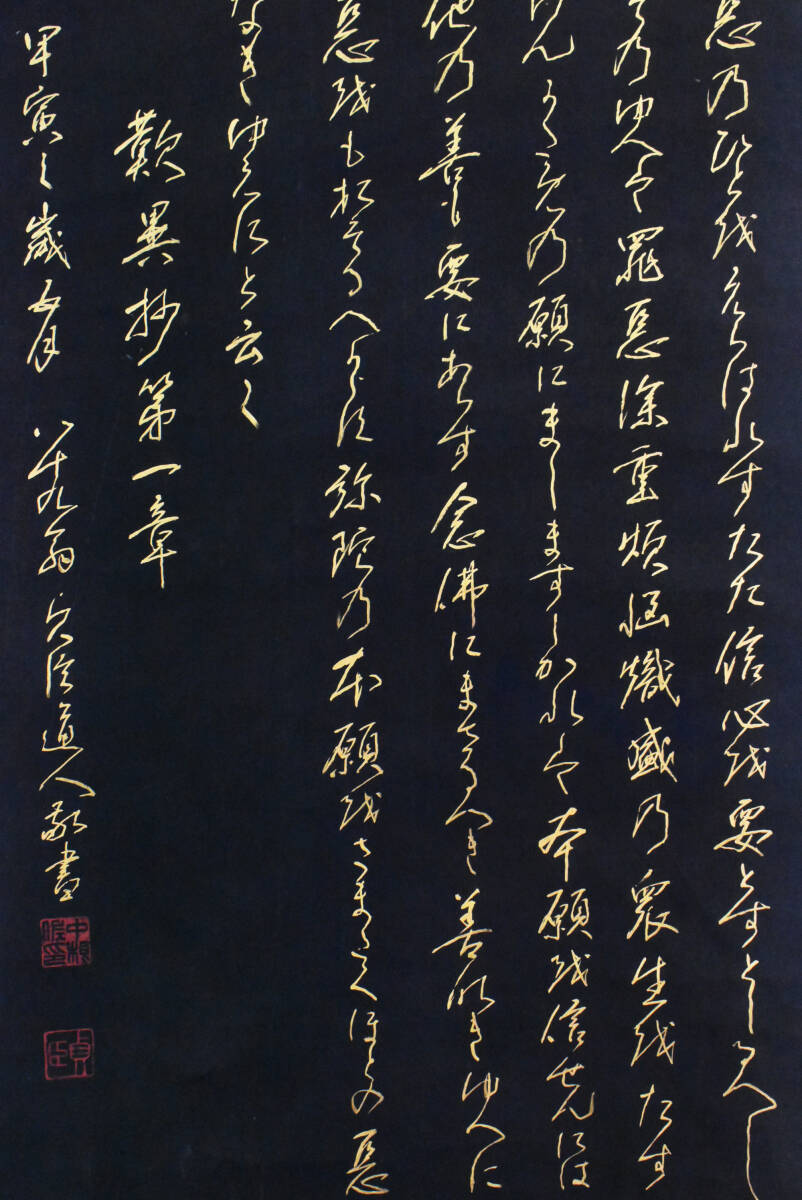 悪のひとをえらはれすたた信心を要とすとしるへし
そのゆへは罪悪深重煩悩熾盛の衆生をたす
けんかための願にましますしかれは本願を信せんには
他の善も要にあらす念佛にまさるへき善なきゆへに
悪をもおそるへからす弥陀の本願をさまたくるほとの悪
なきゆゑにと云々
歎異抄第一章
甲寅之歳五月 八十九翁 道人敬書